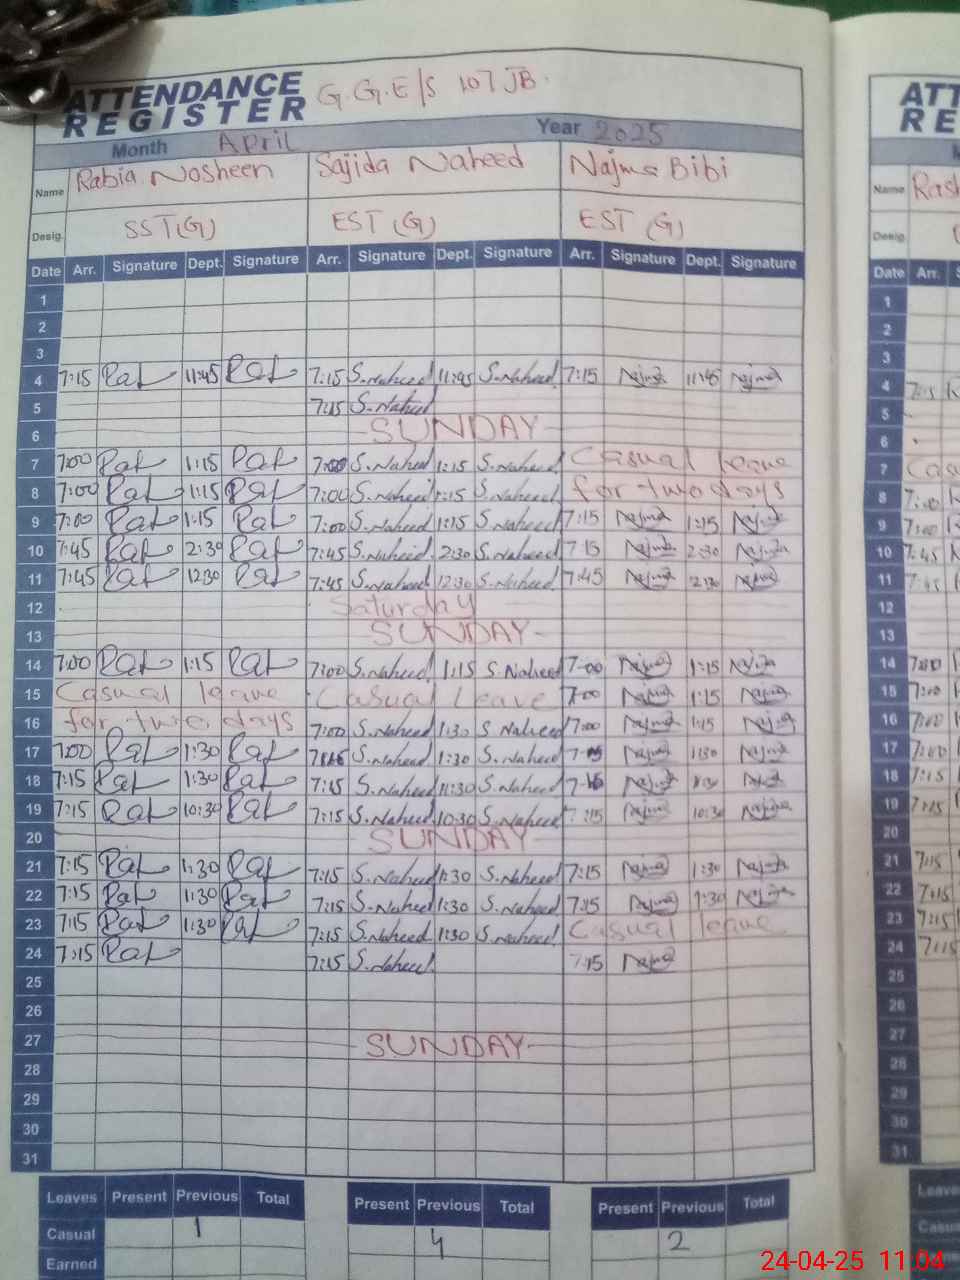 ATTENDANCE REGISTER G.G.E/S 107 JB.
Month April Year 2025
Name Rabia Nosheen Sajida Naheed Najma Bibi
Desig. SST(G) EST (G) EST (G)
Date Arr. Signature Dept. Signature Arr. Signature Dept. Signature Arr. Signature Dept. Signature
1
2
3
4 7:15 11:45 7:15 S.Naheed 11:45 S.Naheed 7:15 Najma 11:45 Najma
5 7:15 S.Naheed
6 SUNDAY
7 7:00 1:15 7:00 S.Naheed 1:15 S.Naheed Casual leave
8 7:00 1:15 7:00 S.Naheed 1:15 S.Naheed for two days
9 7:00 1:15 7:00 S.Naheed 1:15 S.Naheed 7:15 Najma 1:15 Najma
10 7:45 2:30 7:45 S.Naheed 2:30 S.Naheed 7:15 Najma 2:30 Najma
11 7:45 12:30 7:45 S.Naheed 12:30 S.Naheed 7:45 Najma Najma
12 Saturday
13 SUNDAY
14 7:00 1:15 7:00 S.Naheed 1:15 S.Naheed 7:00 Najma 1:15 Najma
15 Casual leave Casual Leave 7:00 Najma 1:15 Najma
16 for two days 7:00 S.Naheed 1:30 S.Naheed 7:00 Najma 1:15 Najma
17 7:00 1:30 S.Naheed 1:30 S.Naheed Najma 1:30 Najma
18 7:15 1:30 7:15 S.Naheed S.Naheed Najma Najma
19 7:15 10:30 7:15 S.Naheed 10:30 S.Naheed 7:15 Najma 10:30 Najma
20 SUNDAY
21 7:15 1:30 7:15 S.Naheed 1:30 S.Naheed 7:15 Najma 1:30 Najma
22 7:15 1:30 7:15 S.Naheed 1:30 S.Naheed 7:15 Najma 1:30 Najma
23 7:15 1:30 7:15 S.Naheed 1:30 S.Naheed Casual leave
24 7:15 7:15 S.Naheed 7:15 Najma
25
26
27 SUNDAY
28
29
30
31
Leaves Present Previous Total Present Previous Total Present Previous Total
Casual 1 4 2
Earned
Name
Desig.
Date Arr.
1
2
3
4 7:15
5
6
7
8 7:00
9 7:00
10 7:45
11 7:45
12
13
14 7:00
15 7:00
16 7:00
17 7:00
18 7:15
19 7:15
20
21 7:15
22 7:15
23 7:15
24 7:15
25
26
27
28
29
30
31
24-04-25 11:04